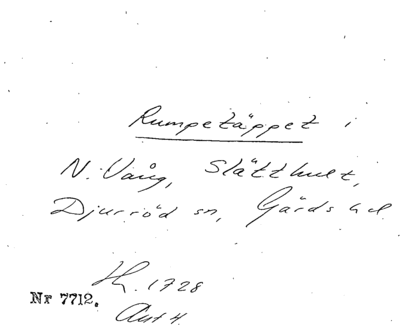 Rumpetäppet i
N. Vång, Slätthult,
Djurröd sn, Gärds hd.
H. 1728
Nr 7712.
Akt 4.